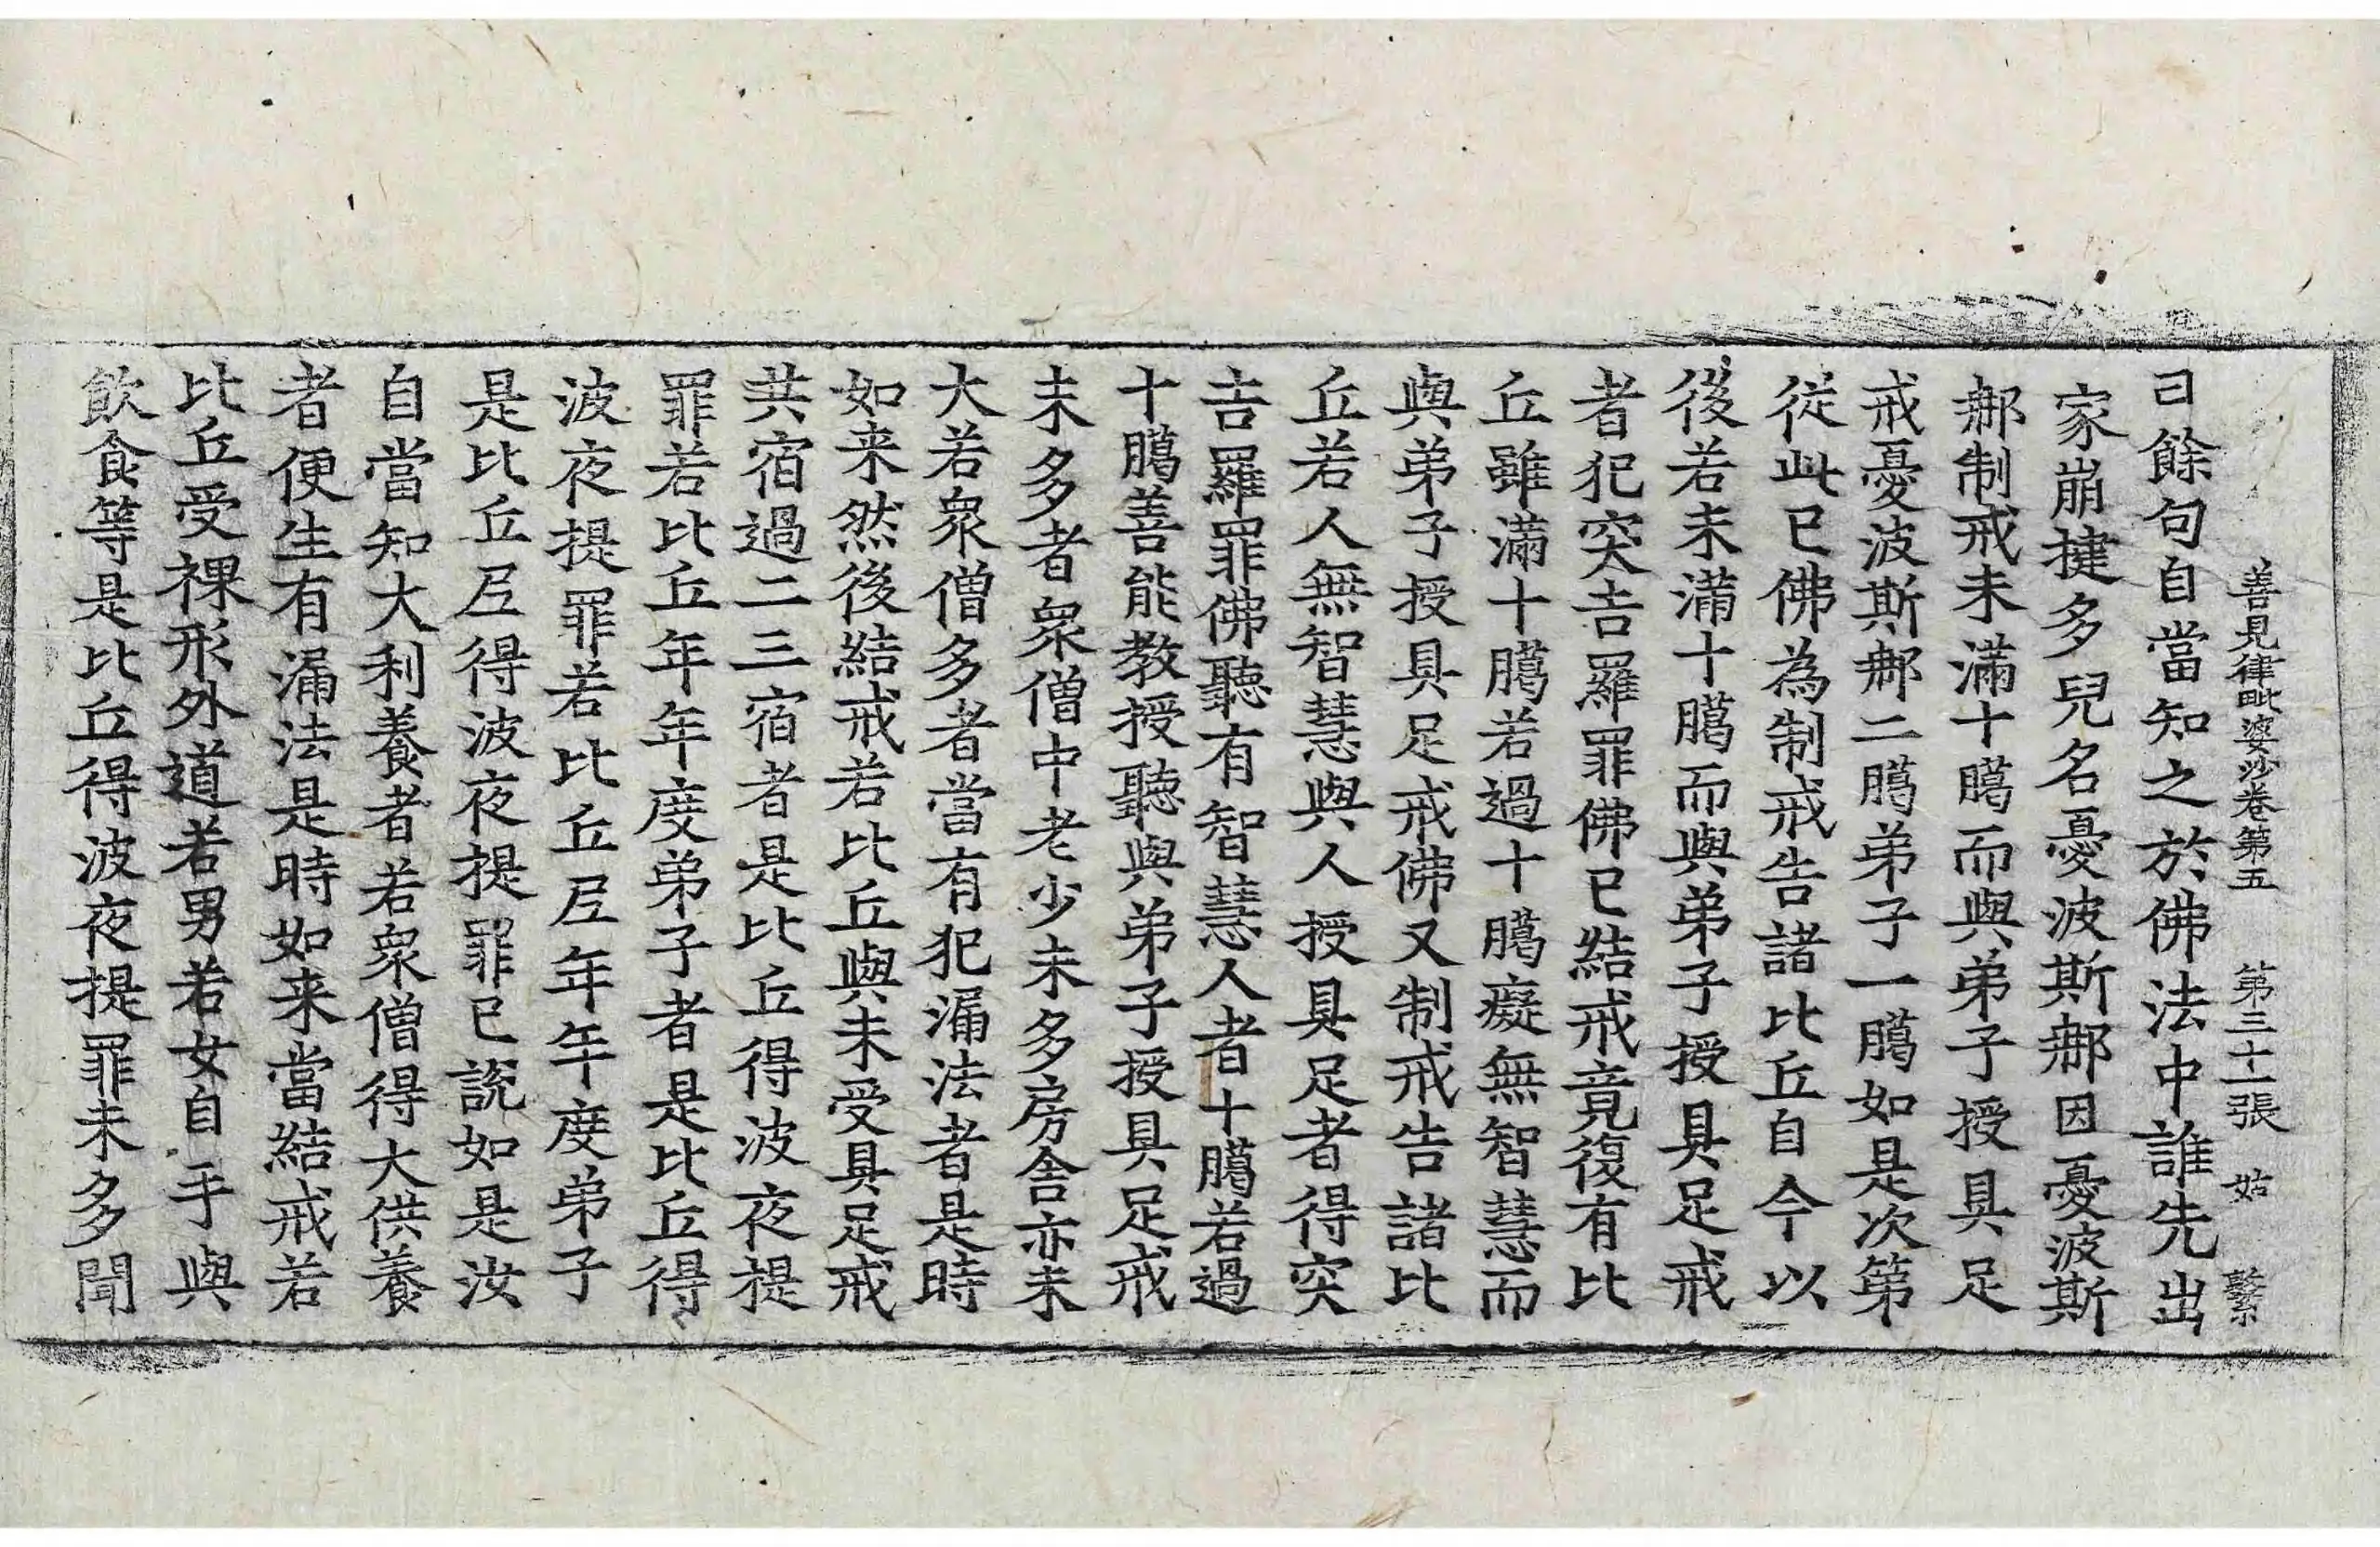 善見律毗婆沙卷第五 第三十一張 姑 繫
曰餘句自當知之於佛法中誰先出
家崩揵多兒名憂波斯那因憂波斯
那制戒未滿十臈而與弟子授具足
戒憂波斯那二臈弟子一臈如是次第
從此已佛為制戒告諸比丘自今以
後若未滿十臈而與弟子授具足戒
者犯突吉羅罪佛已結戒竟復有比
丘雖滿十臈若過十臈癡無智慧而
與弟子授具足戒佛又制戒告諸比
丘若人無智慧與人授具足者得突
吉羅罪佛聽有智慧人者十臈若過
十臈善能教授聽與弟子授具足戒
未多者衆僧中老少未多房舍亦未
大若衆僧多者當有犯漏法者是時
如来然後結戒若比丘與未受具足戒
共宿過二三宿者是比丘得波夜提
罪若比丘年年度弟子者是比丘得
波夜提罪若比丘尼年年度弟子
是比丘尼得波夜提罪已說如是汝
自當知大利養者若衆僧得大供養
者便生有漏法是時如来當結戒若
比丘受裸形外道若男若女自手與
飲食等是比丘得波夜提罪未多聞